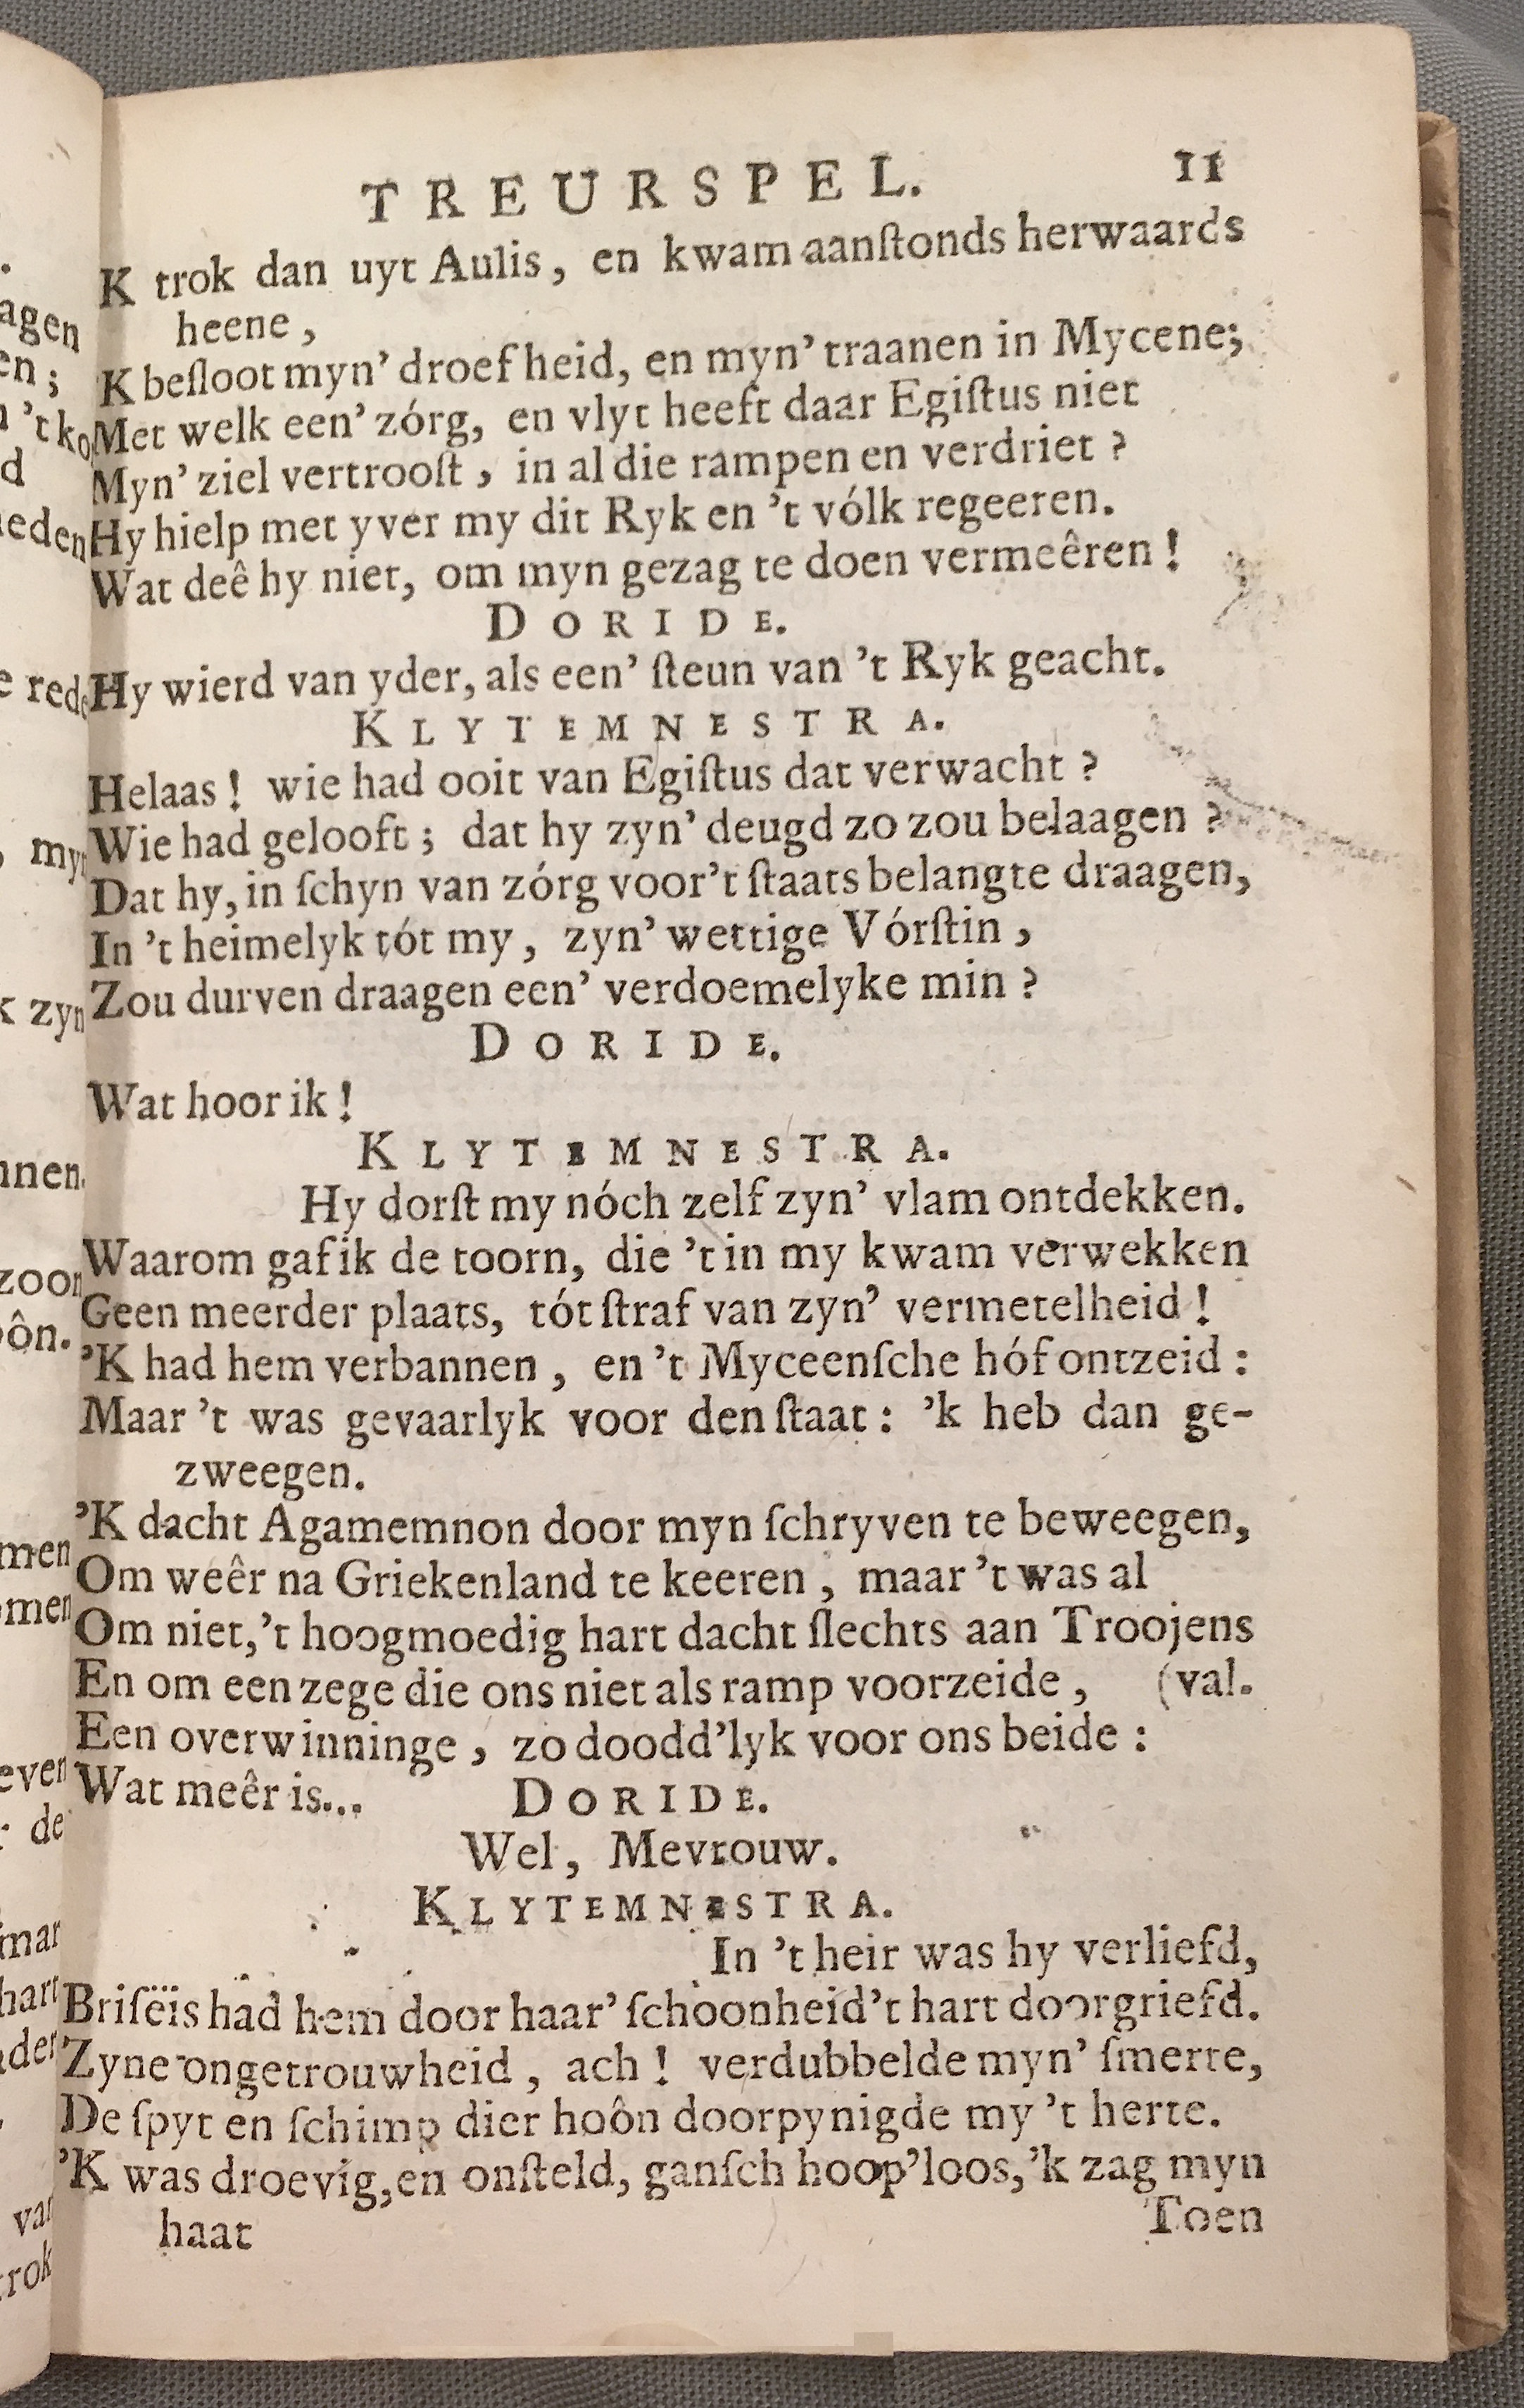 TREURSPEL. 11
K trok dan uyt Aulis, en kwam aanſtonds herwaards
heene,
K beſloot myn' droefheid, en myn' traanen in Mycene;
Met welk een' zórg, en vlyt heeft daar Egiſtus niet
Myn' ziel vertrooſt, in al die rampen en verdriet?
Hy hielp met yver my dit Ryk en 't vólk regeeren.
Wat deê hy niet, om myn gezag te doen vermeêren!
DORIDE.
Hy wierd van yder, als een' ſteun van 't Ryk geacht.
KLYTEMNESTRA.
Helaas! wie had ooit van Egiſtus dat verwacht?
Wie had gelooft; dat hy zyn' deugd zo zou belaagen?
Dat hy, in ſchyn van zórg voor't ſtaats belangte draagen,
In 't heimelyk tót my, zyn' wettige Vórſtin,
Zou durven draagen een' verdoemelyke min?
DORIDE.
Wat hoor ik!
KLYTEMNESTRA.
Hy dorſt my nóch zelf zyn' vlam ontdekken.
Waarom gaf ik de toorn, die 't in my kwam verwekken
Geen meerder plaats, tót ſtraf van zyn' vermetelheid!
'K had hem verbannen, en 't Myceenſche hóf ontzeid:
Maar 't was gevaarlyk voor den ſtaat: 'k heb dan ge-
zweegen.
'K dacht Agamemnon door myn ſchryven te beweegen,
Om weêr na Griekenland te keeren, maar 't was al
Om niet, 't hoogmoedig hart dacht ſlechts aan Troojens
En om een zege die ons niet als ramp voorzeide, (val.
Een overwinninge, zo doodd'lyk voor ons beide:
Wat meêr is... DORIDE.
Wel, Mevrouw.
KLYTEMNESTRA.
In 't heir was hy verliefd,
Briſëïs had hem door haar' ſchoonheid 't hart doorgriefd.
Zyne ongetrouwheid, ach! verdubbelde myn' ſmerte,
De ſpyt en ſchimp dier hoôn doorpynigde my 't herte.
'K was droevig, en onſteld, ganſch hoop'loos, 'k zag myn
haat Toen